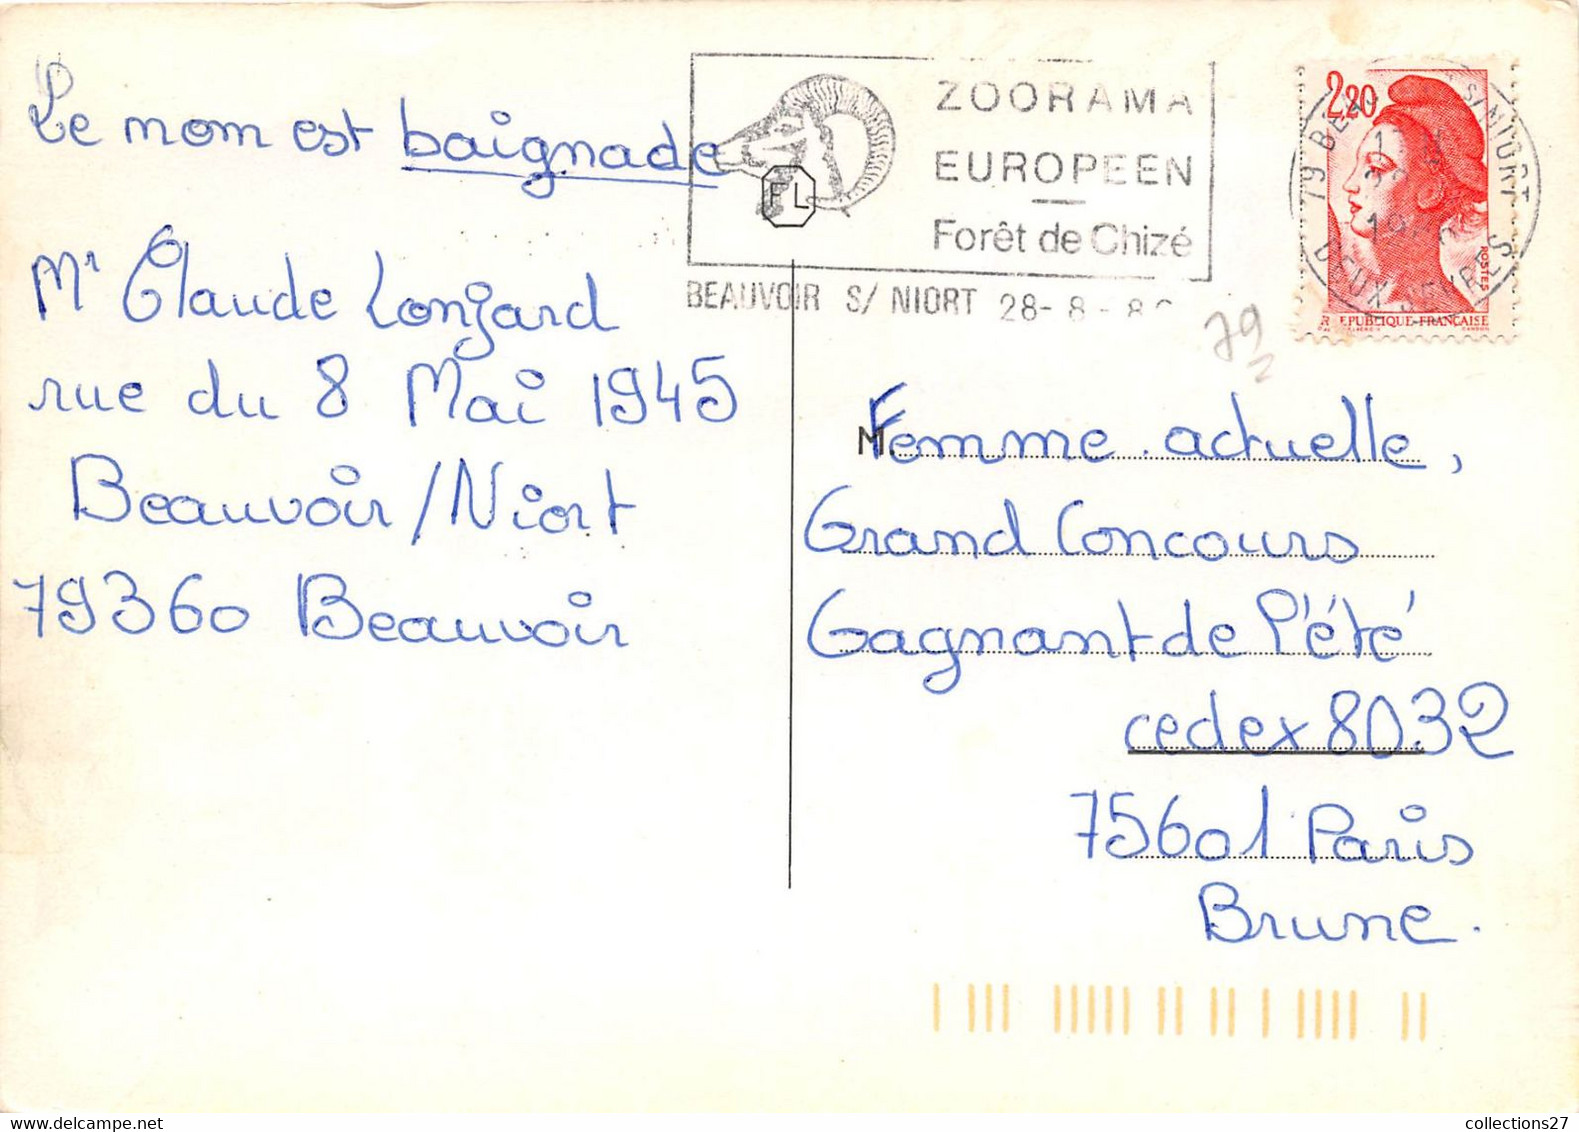 Le nom est baignade
Mr Claude Lonjard
rue du 8 Mai 1945
Beauvoir/Niort
79360 Beauvoir
ZOORAMA
EUROPEEN
Forêt de Chizé
FL
BEAUVOIR S/ NIORT 28-8-8
79
2,20
POSTES
REPUBLIQUE FRANÇAISE
79 BEAU S/NIORT
DEUX SEVRES
M.
Femme actuelle,
Grand Concours
Gagnant de l'été
cedex 8032
75601 Paris
Brune.
collections27